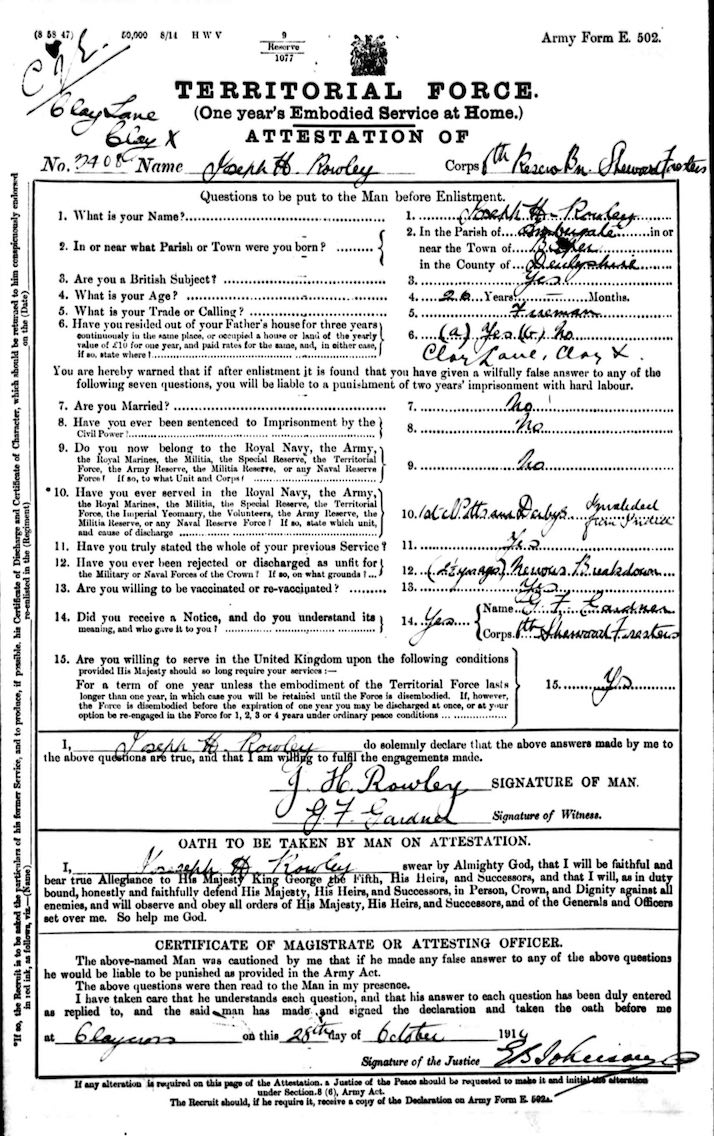 (8 58 47) 50,000 8/14 H W V
9
Reserve
1077
Army Form E. 502.
C/E.
Clay Lane
Clay X
TERRITORIAL FORCE.
(One year's Embodied Service at Home.)
ATTESTATION OF
No. 3408 Name Joseph H. Rowley Corps 6th Reserve Bn. Sherwood Foresters
Questions to be put to the Man before Enlistment.
1. What is your Name? 1. Joseph H. Rowley
2. In or near what Parish or Town were you born? 2. In the Parish of in or
near the Town of
in the County of Derbyshire
3. Are you a British Subject? 3. Yes
4. What is your Age? 4. 26 Years — Months.
5. What is your Trade or Calling? 5. Fireman
6. Have you resided out of your Father's house for three years 6. (a) Yes (b) No
continuously in the same place, or occupied a house or land of the yearly
value of £10 for one year, and paid rates for the same, and, in either case,
if so, state where? Clay Lane, Clay X.
You are hereby warned that if after enlistment it is found that you have given a wilfully false answer to any of the
following seven questions, you will be liable to a punishment of two years' imprisonment with hard labour.
7. Are you Married? 7. No
8. Have you ever been sentenced to Imprisonment by the 8. No
Civil Power?
9. Do you now belong to the Royal Navy, the Army,
the Royal Marines, the Militia, the Special Reserve, the Territorial
Force, the Army Reserve, the Militia Reserve, or any Naval Reserve 9. No
Force? If so, to what Unit and Corps?
*10. Have you ever served in the Royal Navy, the Army,
the Royal Marines, the Militia, the Special Reserve, the Territorial
Force, the Imperial Yeomanry, the Volunteers, the Army Reserve, the 10. 1st Notts and Derbys Invalided
Militia Reserve, or any Naval Reserve Force? If so, state which unit, from
and cause of discharge
11. Have you truly stated the whole of your previous Service? 11. Yes
12. Have you ever been rejected or discharged as unfit for
the Military or Naval Forces of the Crown? If so, on what grounds? 12. Nervous Breakdown
13. Are you willing to be vaccinated or re-vaccinated? 13. Yes
14. Did you receive a Notice, and do you understand its 14. Yes Name G F Gardner
meaning, and who gave it to you? Corps. 6th Sherwood Foresters
15. Are you willing to serve in the United Kingdom upon the following conditions
provided His Majesty should so long require your services:—
For a term of one year unless the embodiment of the Territorial Force lasts 15. Yes
longer than one year, in which case you will be retained until the Force is disembodied. If, however,
the Force is disembodied before the expiration of one year you may be discharged at once, or at your
option be re-engaged in the Force for 1, 2, 3 or 4 years under ordinary peace conditions
I, Joseph H. Rowley do solemnly declare that the above answers made by me to
the above questions are true, and that I am willing to fulfil the engagements made.
J. H. Rowley SIGNATURE OF MAN.
G. F. Gardner Signature of Witness.
OATH TO BE TAKEN BY MAN ON ATTESTATION.
I, Joseph H Rowley swear by Almighty God, that I will be faithful and
bear true Allegiance to His Majesty King George the Fifth, His Heirs, and Successors, and that I will, as in duty
bound, honestly and faithfully defend His Majesty, His Heirs, and Successors, in Person, Crown, and Dignity against all
enemies, and will observe and obey all orders of His Majesty, His Heirs, and Successors, and of the Generals and Officers
set over me. So help me God.
CERTIFICATE OF MAGISTRATE OR ATTESTING OFFICER.
The above-named Man was cautioned by me that if he made any false answer to any of the above questions
he would be liable to be punished as provided in the Army Act.
The above questions were then read to the Man in my presence.
I have taken care that he understands each question, and that his answer to each question has been duly entered
as replied to, and the said man has made and signed the declaration and taken the oath before me
at Claycross on this 28th day of October 1914
Signature of the Justice
If any alteration is required on this page of the Attestation. a Justice of the Peace should be requested to make it and initial the alteration
under Section.8 (6), Army Act.
The Recruit should, if he require it, receive a copy of the Declaration on Army Form E. 502A.
*If so, the Recruit is to be asked the particulars of his former Service, and to produce, if possible, his Certificate of Discharge and Certificate of Character, which should be returned to him conspicuously endorsed
in red ink, as follows, viz.—(Name) re-enlisted in the (Regiment) on the (Date)